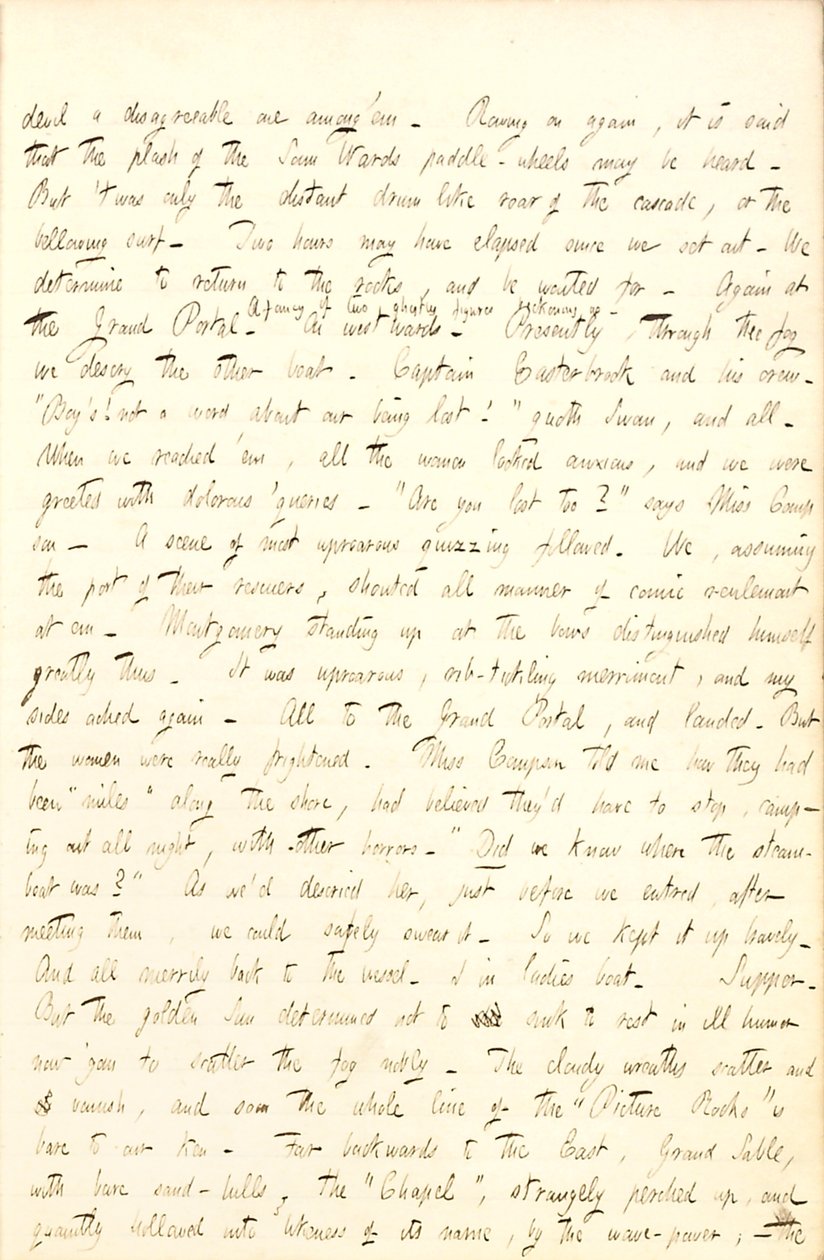 devil a disagreeable one among 'em - Rowing on again, it is said
that the plash of the Sam Wards paddle-wheels may be heard -
But 'twas only the distant drum like roar of the cascade, or the
bellowing surf - Two hours may have elapsed since we set out - We
determine to return to the rocks, and be waited for - Again at
A fancy of two ghostly figures beckoning us -
the Grand Portal - On westwards - Presently, through the fog
we descry the other boat. Captain Easterbrook and his crew -
"Boy's! not a word about our being lost!" quoth Swan, and all -
When we reached 'em, all the women looked anxious, and we were
greeted with dolorous 'queries - "Are you lost too?" says Miss Camp
son - A scene of most uproarous quizzing followed. We, assuming
the part of their rescuers, shouted all manner of comic revilement
at em - Montgomery standing up at the bows distinguished himself
greatly thus - It was uproarous, rib-tickling merriment, and my
sides ached again - All to the Grand Portal, and landed - But
the women were really frightened. Miss Campson told me how they had
been "miles" along the shore, had believed they'd have to stop, camp-
ing out all night, with other horrors - "Did we know where the steam-
boat was?" As we'd descried her, just before we entred, after
meeting them, we could safely swear it - So we kept it up bravely -
And all merrily back to the vessel - I in ladies boat - Supper -
But the golden Sun determined not to sink to rest in ill humor
now 'gan to scatter the fog nobly - The cloudy wreaths scatter and
vanish, and soon the whole line of the "Picture Rocks" is
bare to our ken - Far backwards to the East, Grand Sable,
with bare sand-hills, the "Chapel", strangely perched up, and
quaintly hollowed into likeness of its name, by the wave-power; - the